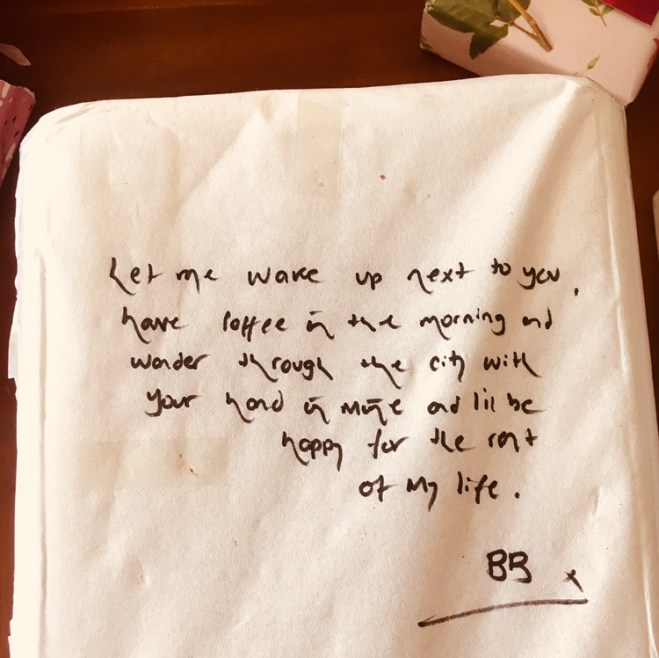 Let me wake up next to you,
have coffee in the morning and
wander through the city with
your hand in mine and I'll be
happy for the rest
of my life.
BB x